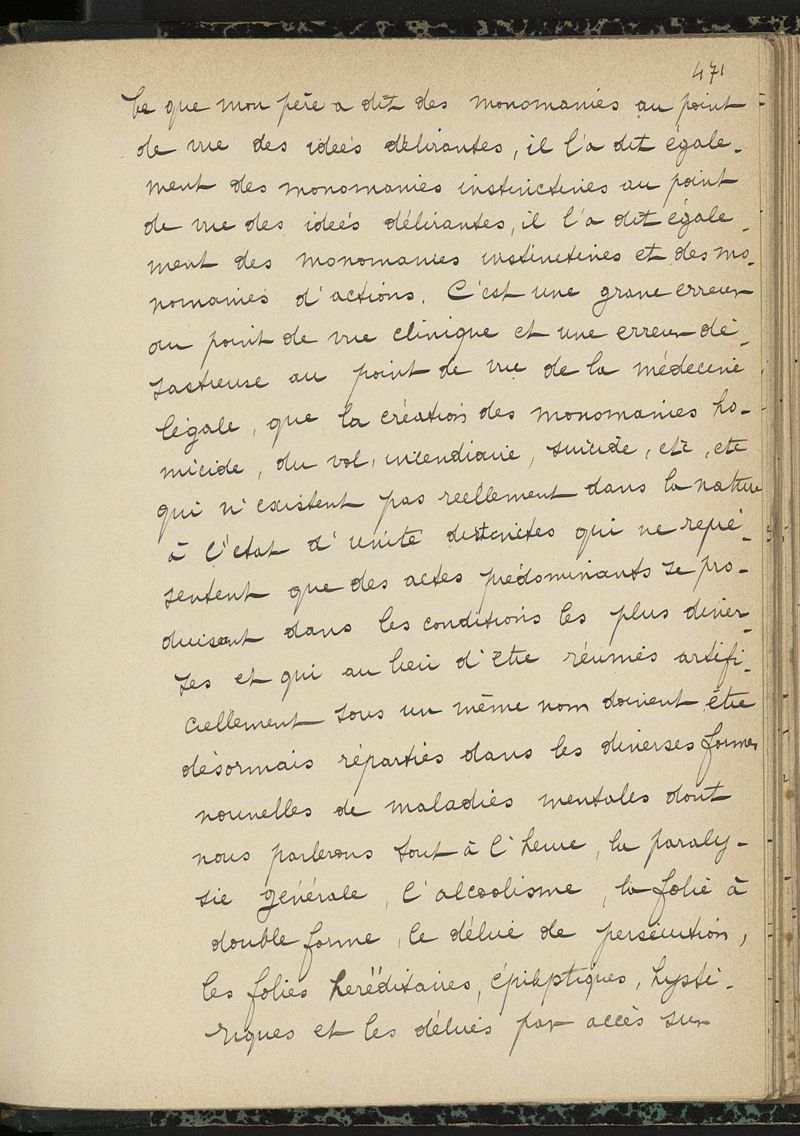 471
Ce que mon père a dit des monomanies au point
de vue des idées délirantes, il l'a dit égale-
ment des monomanies instinctives au point
de vue des idées délirantes, il l'a dit égale-
ment des monomanies instinctives et des mo-
nomanies d'actions. C'est une grave erreur
au point de vue clinique et une erreur dé-
sastreuse au point de vue de la médecine
légale, que la création des monomanies ho-
micide, du vol, incendiaire, suicide, etc, etc
qui n'existent pas reellement dans la nature
à l'état d'unité distinctes qui ne repré-
sentent que des actes prédominants se pro-
duisant dans les conditions les plus diver-
ses et qui au lieu d'être réunies artifi-
ciellement sous un même nom doivent être
désormais réparties dans les diverses formes
nouvelles de maladies mentales dont
nous parlerons tout à l'heure, la paraly-
sie générale, l'alcoolisme, la folie à
double forme, le délire de persécution,
les folies heréditaires, épileptiques, hysté-
riques et les délires par accès sur